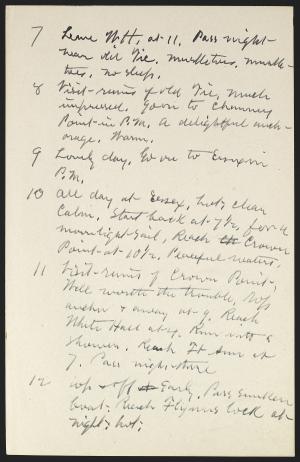 7 Leave W.H. at 11. Pass night
near old Tie. musketoes, muske
toes, no sleep.
8 Visit ruins of old Tie, much
impressed. Go on to Chimney
Point in P.M. A delightful anch-
orage. Warm.
9 Lovely day. Go on to Essex in
P.M.
10 all day at Essex, hot, clear
Calm. Start back at 7½, for a
moonlight sail, Reach Crown
Point at 10½. Peaceful waters.
11 Visit ruins of Crown Point,
Well worth the trouble, Up
anchor & away at 9. Reach
White Hall at 4. Run into a
shower. Reach Ft Ann at
7. Pass night there
12 up & off Early. Pass sunken
boat; Reach Flynns lock at
night; hot;